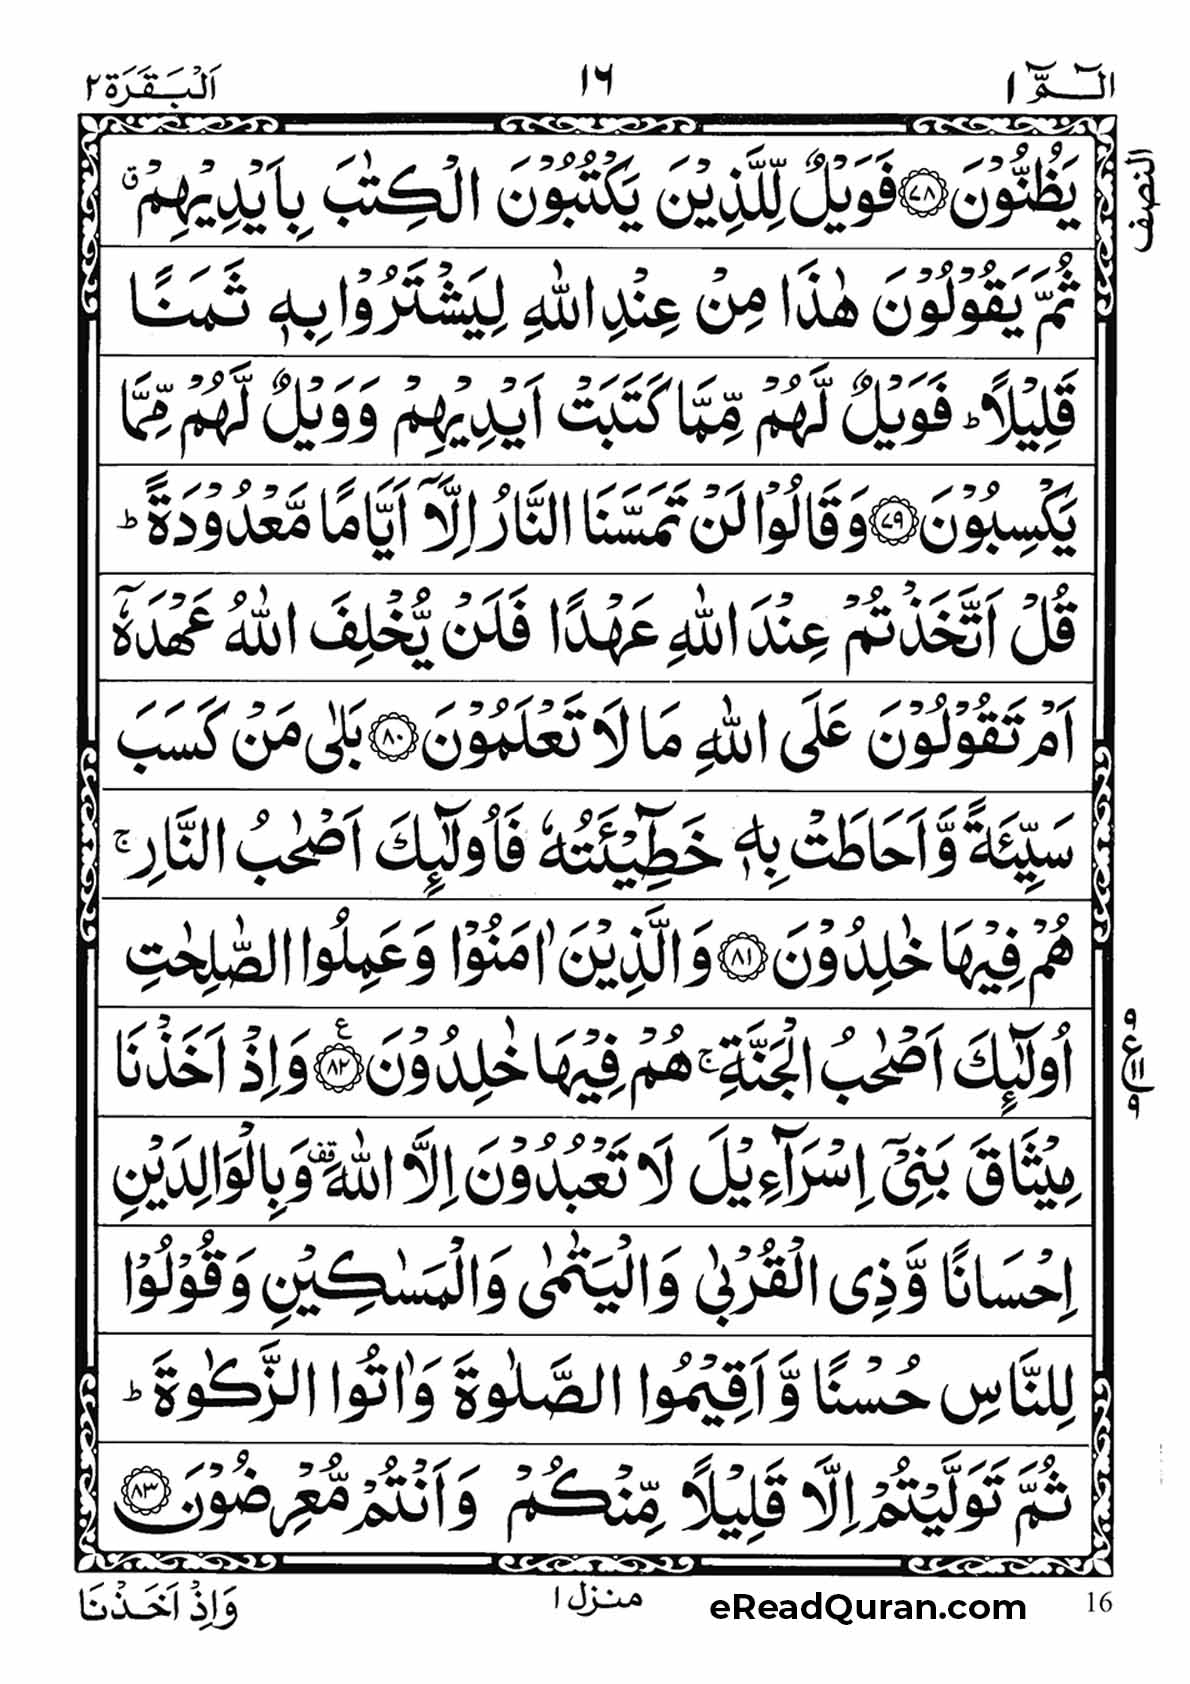 الٓـمّٓ ١ ١٦ اَلْبَقَرَة ٢
النصف
يَظُنُّوْنَ ﴿٧٨﴾ فَوَيْلٌ لِّلَّذِيْنَ يَكْتُبُوْنَ الْكِتٰبَ بِاَيْدِيْهِمْ ۗ
ثُمَّ يَقُوْلُوْنَ هٰذَا مِنْ عِنْدِ اللّٰهِ لِيَشْتَرُوْا بِهٖ ثَمَنًا
قَلِيْلًا ؕ فَوَيْلٌ لَّهُمْ مِّمَّا كَتَبَتْ اَيْدِيْهِمْ وَوَيْلٌ لَّهُمْ مِّمَّا
يَكْسِبُوْنَ ﴿٧٩﴾ وَقَالُوْا لَنْ تَمَسَّنَا النَّارُ اِلَّاۤ اَيَّامًا مَّعْدُوْدَةً ؕ
قُلْ اَتَّخَذْتُمْ عِنْدَ اللّٰهِ عَهْدًا فَلَنْ يُّخْلِفَ اللّٰهُ عَهْدَهٗۤ
اَمْ تَقُوْلُوْنَ عَلَى اللّٰهِ مَا لَا تَعْلَمُوْنَ ﴿٨٠﴾ بَلٰى مَنْ كَسَبَ
سَيِّئَةً وَّاَحَاطَتْ بِهٖ خَطِيْٓـَٔتُهٗ فَاُولٰٓئِكَ اَصْحٰبُ النَّارِ ۚ
هُمْ فِيْهَا خٰلِدُوْنَ ﴿٨١﴾ وَالَّذِيْنَ اٰمَنُوْا وَعَمِلُوا الصّٰلِحٰتِ
اُولٰٓئِكَ اَصْحٰبُ الْجَنَّةِ ۚ هُمْ فِيْهَا خٰلِدُوْنَ ﴿٨٢﴾ ع وَاِذْ اَخَذْنَا
مِيْثَاقَ بَنِيْۤ اِسْرَآءِيْلَ لَا تَعْبُدُوْنَ اِلَّا اللّٰهَ قف وَبِالْوَالِدَيْنِ
اِحْسَانًا وَّذِى الْقُرْبٰى وَالْيَتٰمٰى وَالْمَسٰكِيْنِ وَقُوْلُوْا
لِلنَّاسِ حُسْنًا وَّاَقِيْمُوا الصَّلٰوةَ وَاٰتُوا الزَّكٰوةَ ؕ
ثُمَّ تَوَلَّيْتُمْ اِلَّا قَلِيْلًا مِّنْكُمْ وَاَنْتُمْ مُّعْرِضُوْنَ ﴿٨٣﴾
16 eReadQuran.com منزل ١ وَاِذْ اَخَذْنَا